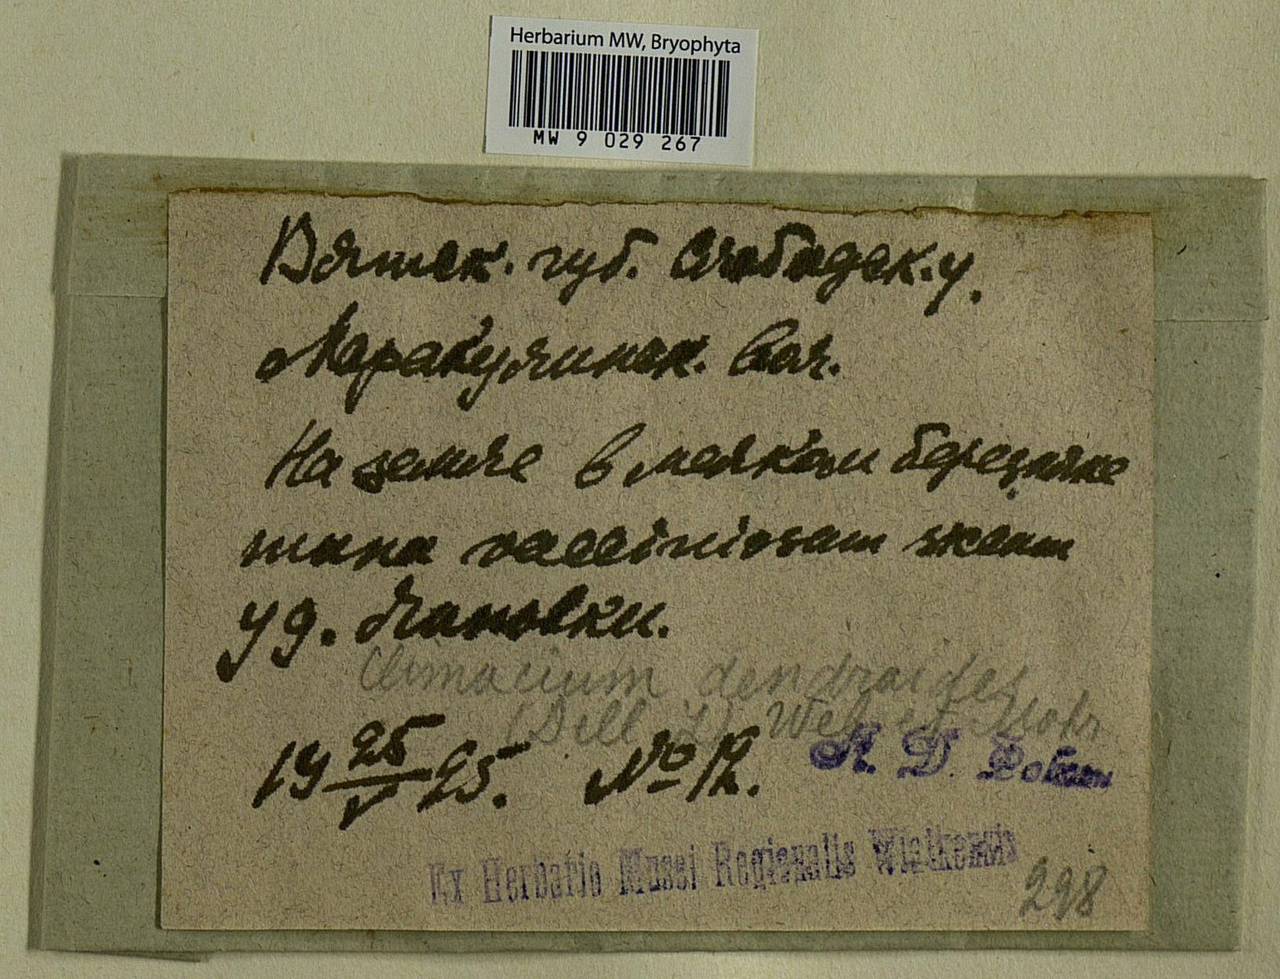 Herbarium MW, Bryophyta
MW 9 029 267
Вятск. губ. Слободск. у.
Маракулинск. вол.
На земле в мелком березняке
типа vacciniosum
у д. Клановки.
Climacium dendroides
(Dill L) Web et Mohr
19 25/V 25. № 12. А. Д.
Ex Herbario Musei Regionalis Wiatkensis
298